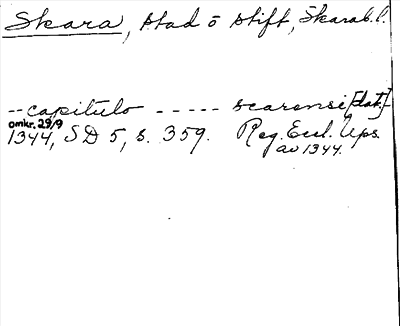 Skara, stad o stift, Skarab.l.
-- capitulo ----- scarensi [dat.]-
omkr. 29/9
1344, SD 5, s. 359. Reg. Eccl. Ups.
av 1344.